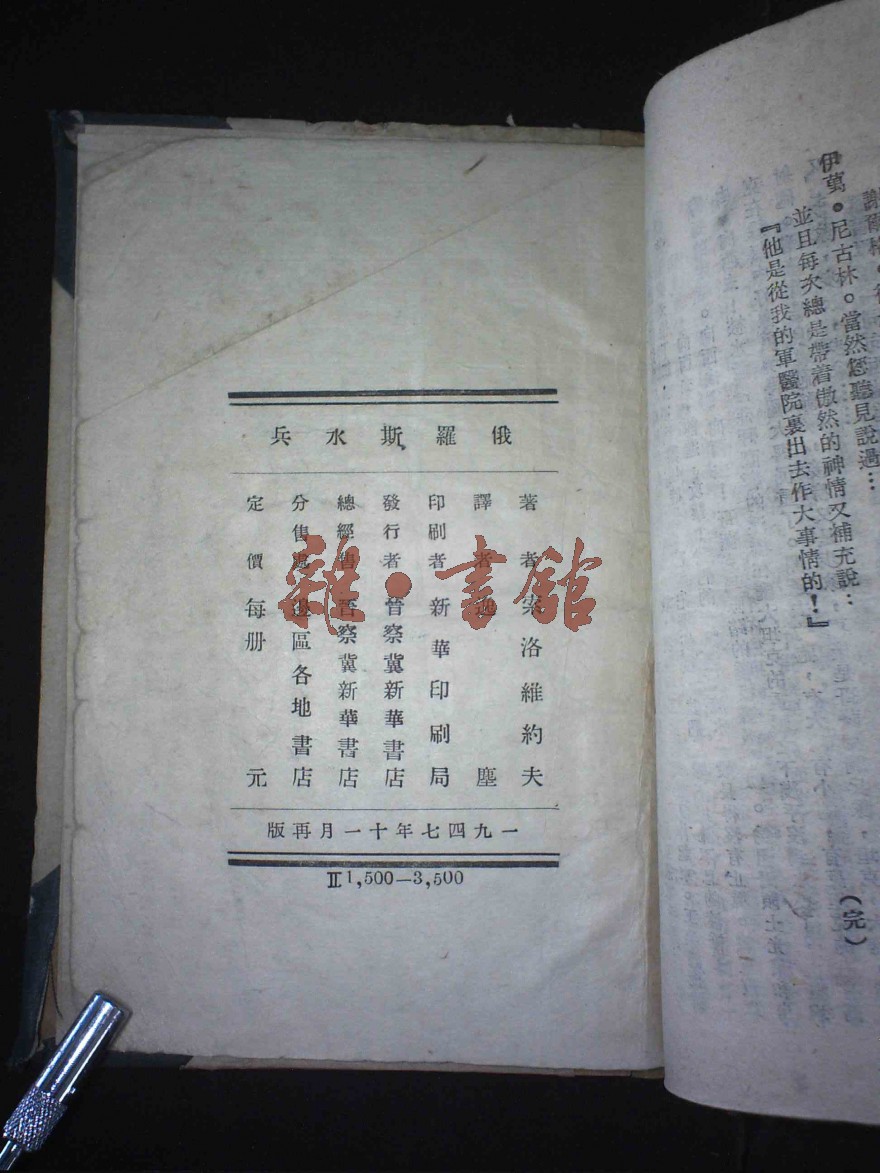 俄羅斯水兵
著者 索洛維約夫
譯者 塵
印刷者 新華印刷局
發行者 晉察冀新華書店
總經售 晉察冀新華書店
分售處 邊區各地書店
定價 每册 元
一九四七年十一月再版
Ⅱ 1,500—3,500
雜·書館
伊萬。尼古林。當然您聽見說過…
並且每次總是帶着傲然的神情又補充說：
『他是從我的軍醫院裏出去作大事情的！』
（完）